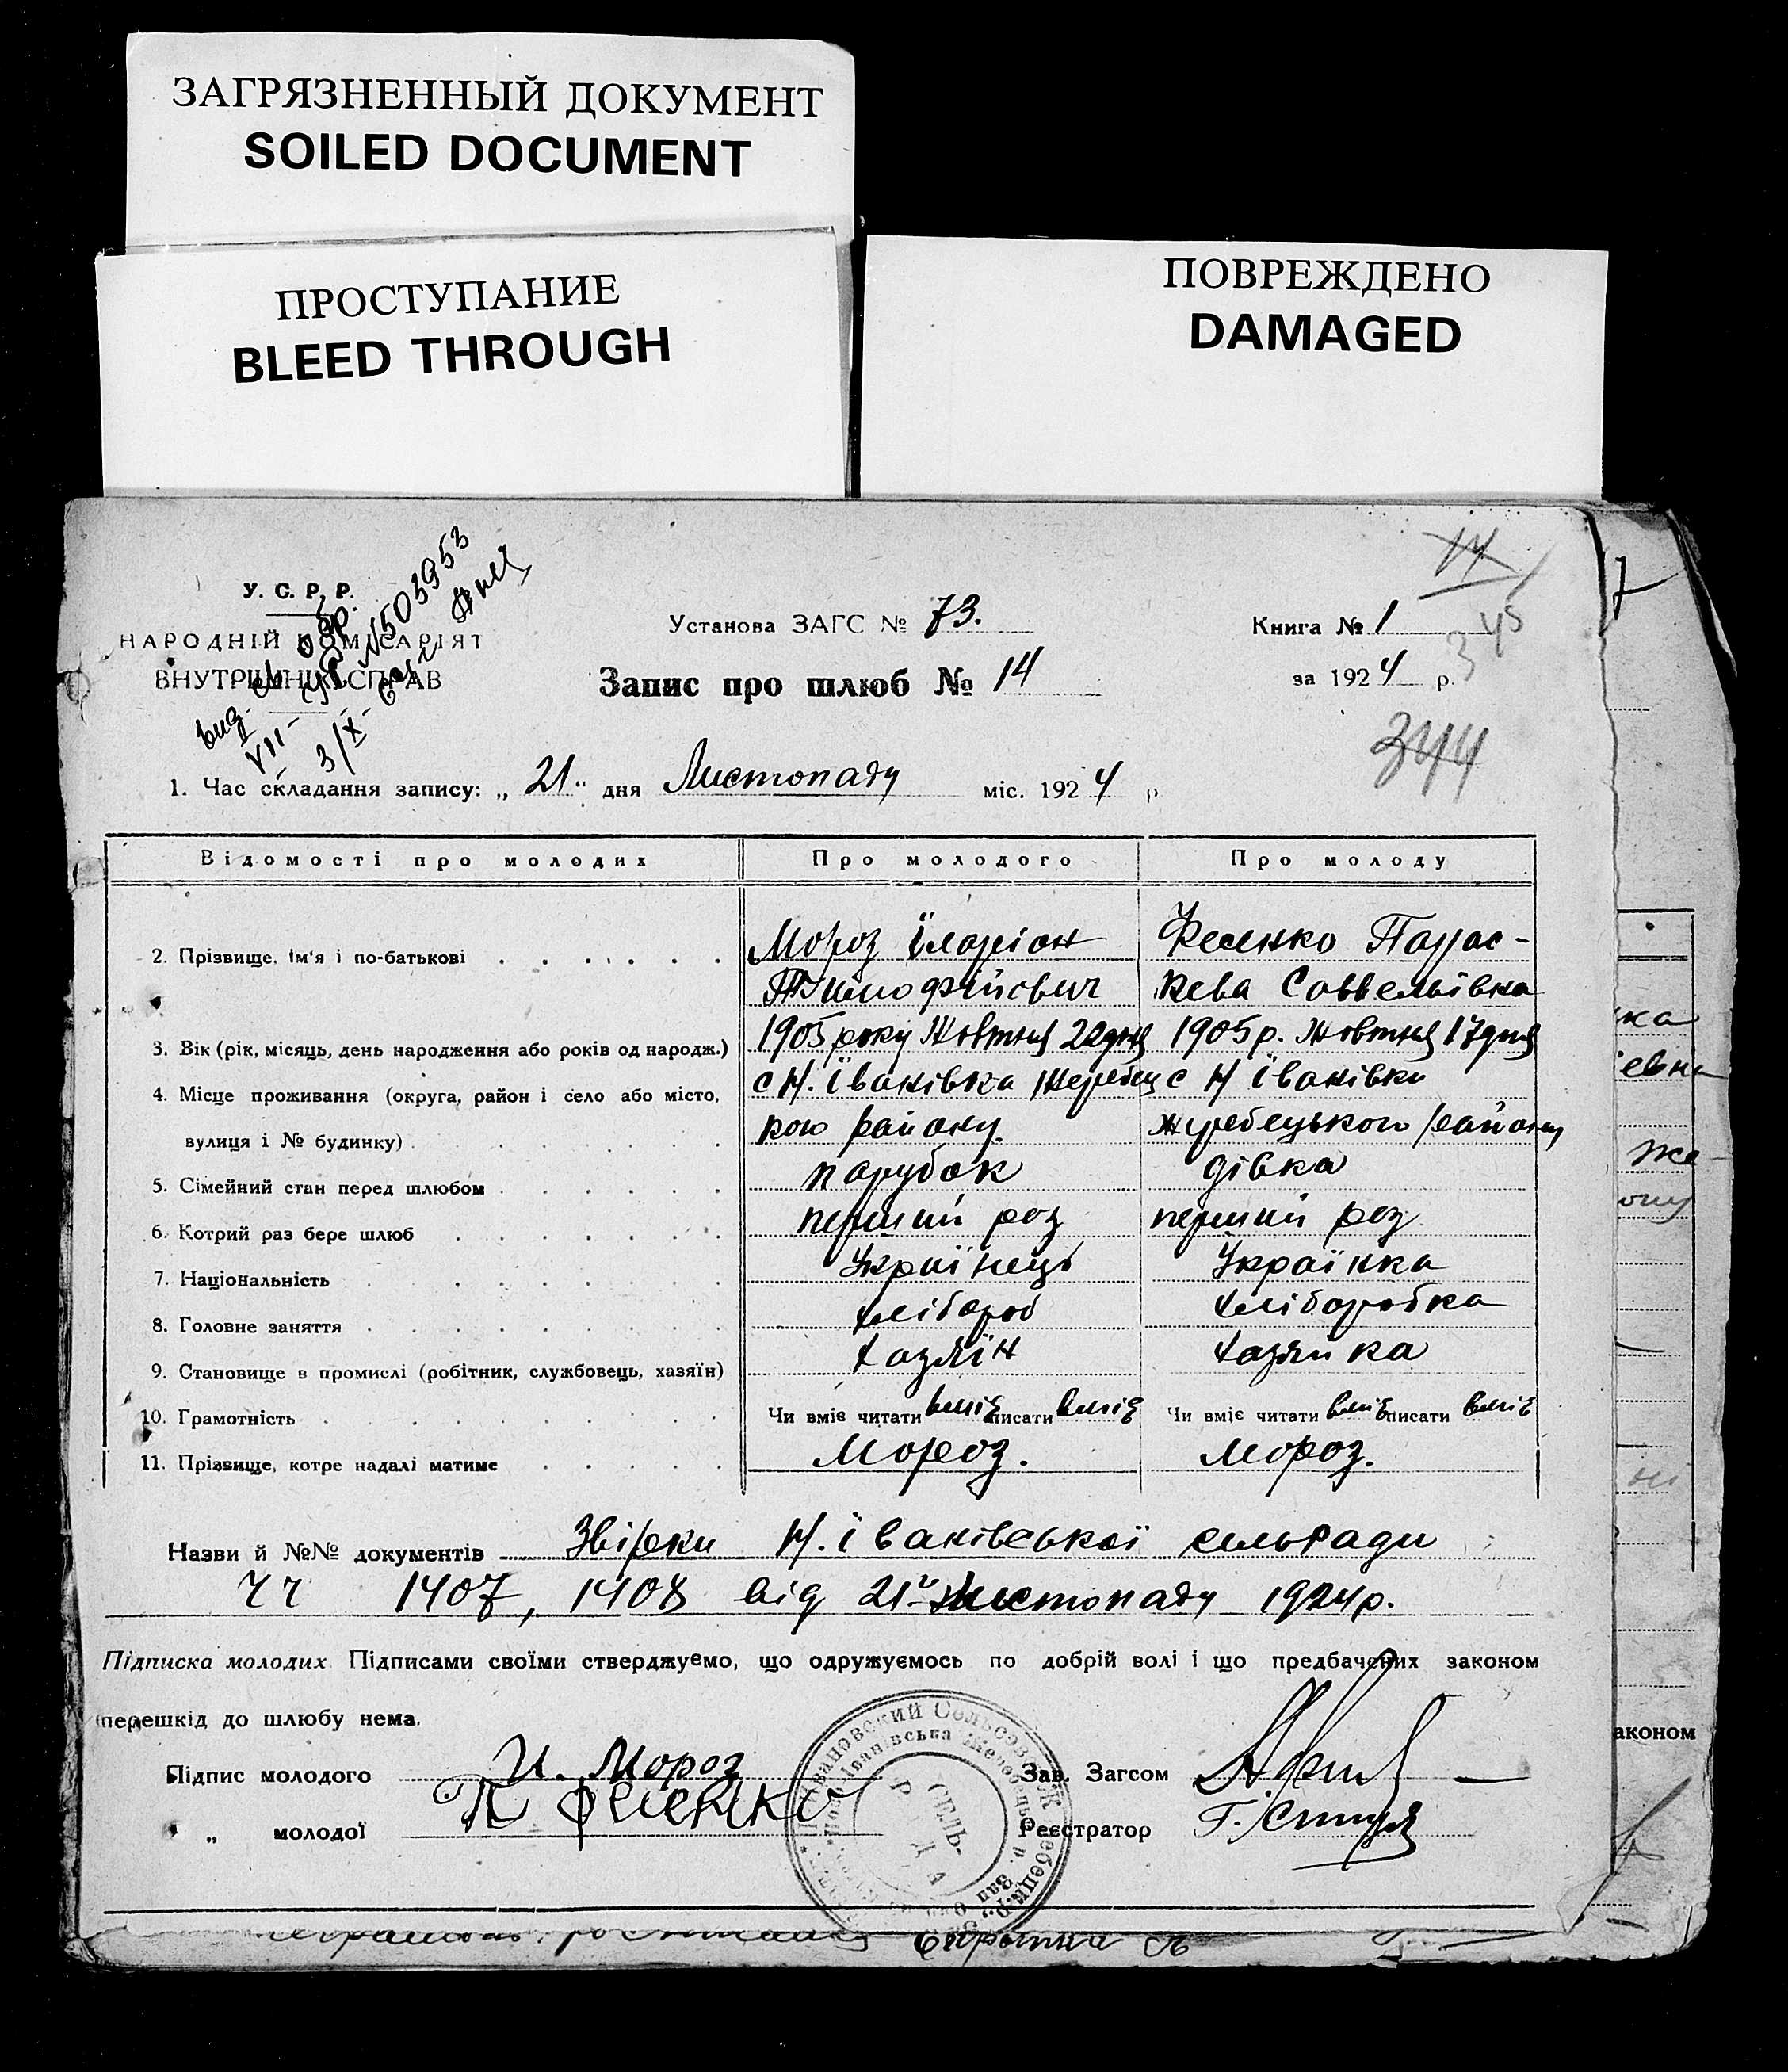 ЗАГРЯЗНЕННЫЙ ДОКУМЕНТ
SOILED DOCUMENT
ПРОСТУПАНИЕ
BLEED THROUGH
ПОВРЕЖДЕНО
DAMAGED
17
7
У. С. Р. Р.
НАРОДНІЙ КОМІСАРІЯТ
ВНУТРІШНІХ СПРАВ
вид.
VII- №503953
3/X-
Установа ЗАГС № 73.
Запис про шлюб № 14
Книга № 1
за 1924 р.
345
344
1. Час складання запису: „ 21 “ дня Листопаду міс. 1924 р
Відомості про молодих Про молодого Про молоду
2. Прізвище, Ім'я і по-батькові Мороз Їларіон Фесенко Парас-
Тимофійович кева Саввельівна
3. Вік (рік, місяць, день народження або років од народж.) 1905 року Жовтня 22 дня 1905 р. Жовтня 17 дня
4. Місце проживання (округа, район і село або місто, с Н. Їванівка Жеребец с Н Їванівки
вулиця і № будинку) кою району. жеребецького району
5. Сімейний стан перед шлюбом парубок дівка
6. Котрий раз бере шлюб перший раз перший раз
7. Національність Українець Українка
8. Головне заняття хлібороб хліборобка
9. Становище в промислі (робітник, службовець, хазяїн) хазяїн хазяйка
10. Грамотність Чи вміє читати вміє писати вміє Чи вміє читати вміє писати вміє
11. Прізвище, котре надалі матиме Мороз. Мороз.
Назви й №№ документів Звірки Н. Їванівської сельради
чч 1407, 1408 від 21го Листопаду 1924 р.
Підписка молодих. Підписами своїми стверджуємо, що одружуємось по добрій волі і що предбачених законом
перешкід до шлюбу нема.
Підпис молодого И. Мороз Зав. Загсом
„ молодої П Фесенко Реєстратор
СЕЛЬ-
РАДА
ка
евна
же
аконом